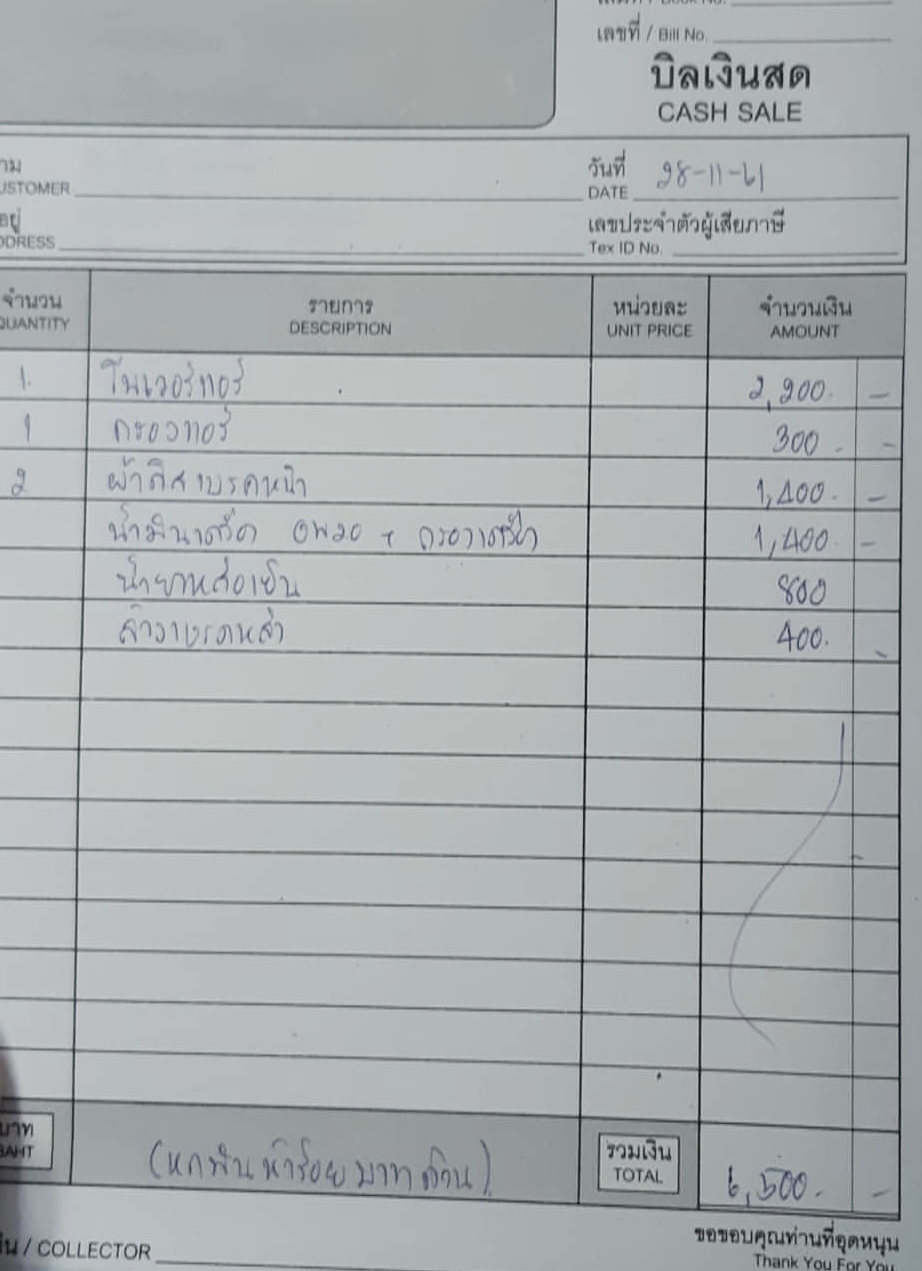 เลขที่ / Bill No.
บิลเงินสด
CASH SALE
วันที่ 28-11-61
DATE
USTOMER
เลขประจำตัวผู้เสียภาษี
DDRESS
Tex ID No.
จำนวน รายการ หน่วยละ จำนวนเงิน
QUANTITY DESCRIPTION UNIT PRICE AMOUNT
1. โบเวอร์เทอร์ 2,200. -
1 กรองเทอร์ 300 - -
2 ผ้าดิสเบรคหน้า 1,400. -
น้ำมันเครื่อง 0W20 + กรองเครื่อง 1,400. -
น้ำยาหล่อเย็น 800
ล้างเบรคหลัง 400. -
บาท (หกพันห้าร้อยบาทถ้วน) รวมเงิน 6,500. -
BAHT TOTAL
ขอขอบคุณท่านที่อุดหนุน
/ COLLECTOR
Thank You For You